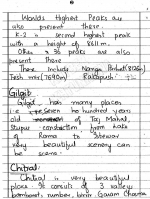 Worlds Highest Peaks are
also present there.
K-2 is second highest peak
with a height of 8611m.
Other 36 peaks are also
present there
These Include Nanga Parbat (8126m)
(7690m) Rakaposhi
Gilgit
Gilgit has many places
i.e seven hundred years
old of Taj Mahal,
Stupas conduction
of Rama to
very beautiful scenery can
be seen.
Chitral
Chitral is very beautiful
place. It consists of 3 valleys
bomboret, rumbur, birir Garam Chasma